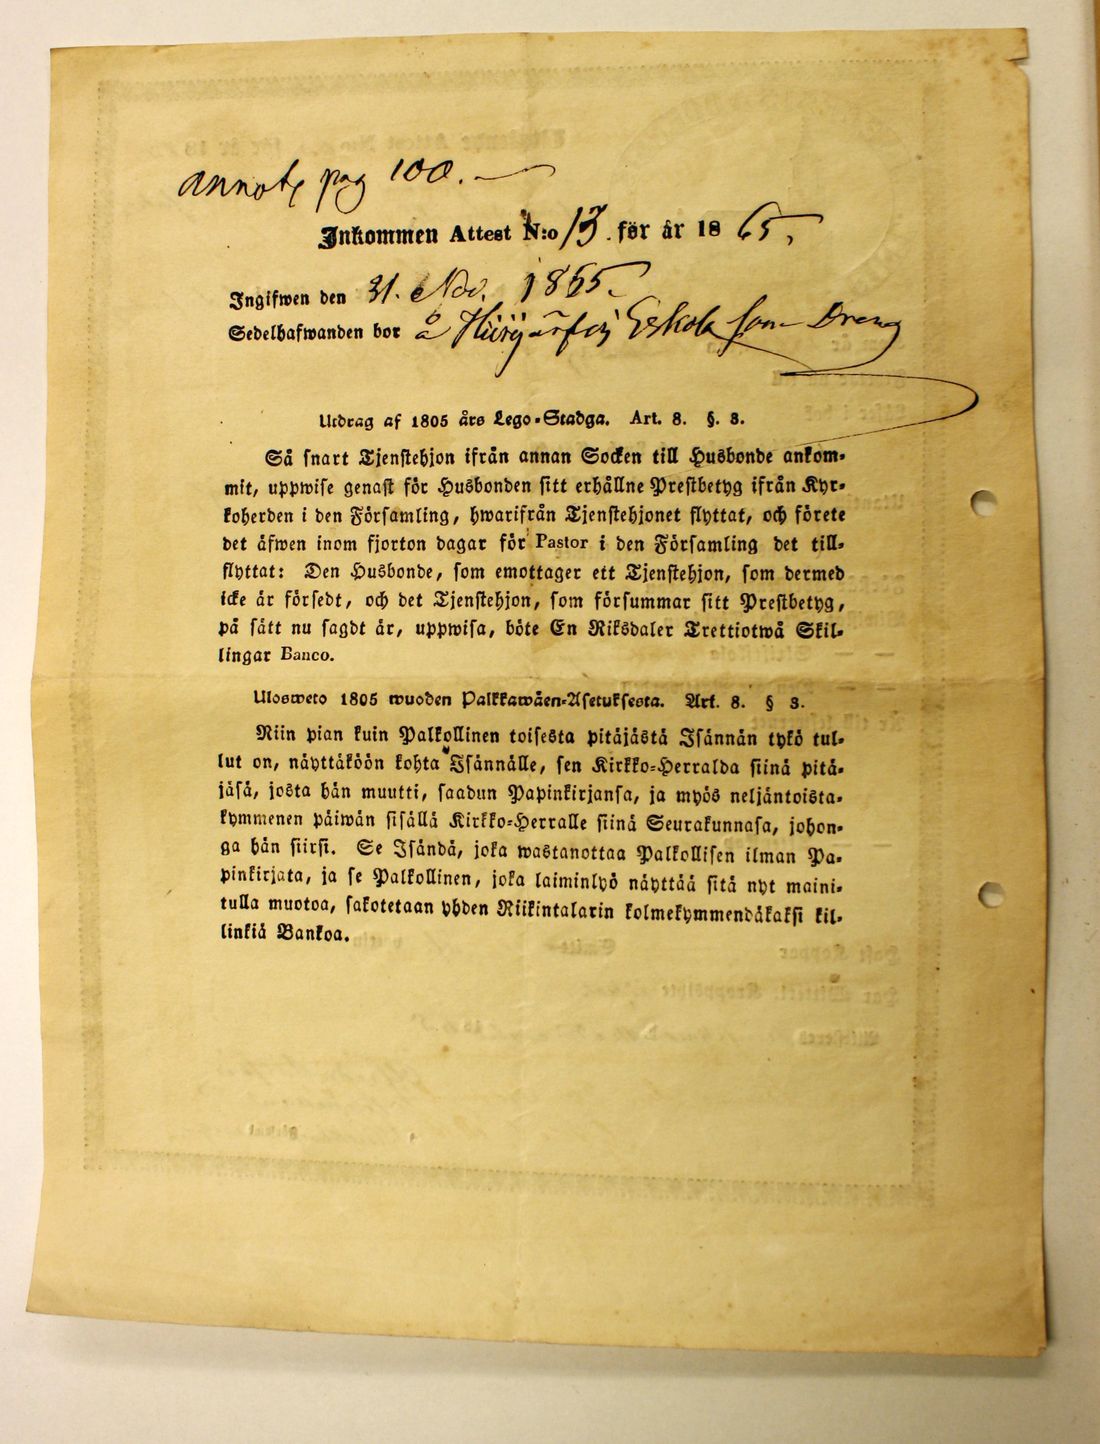 annot. pag 100.
Inkommen Attest N:o 13. för år 1865,
Ingifwen den 31. Nov. 1865.
Sedelhafwanden bor å Eskola som Dreng
Utdrag af 1805 års Lego-Stadga. Art. 8. §. 3.
Så snart Tjenstehjon ifrån annan Socken till Husbonde ankom-
mit, uppwise genast för Husbonden sitt erhållne Prestbetyg ifrån Kyr-
koherden i den Församling, hwarifrån Tjenstehjonet flyttat, och förete
det äfwen inom fjorton dagar för Pastor i den Församling det till-
flyttat: Den Husbonde, som emottager ett Tjenstehjon, som dermed
icke är försedt, och det Tjenstehjon, som försummar sitt Prestbetyg,
på sätt nu sagdt är, uppwisa, böte En Riksdaler Trettiotwå Skil-
lingar Banco.
Ulosweto 1805 wuoden Palkkawäen-Asetuksesta. Art. 8. § 3.
Niin pian kuin Palkollinen toisesta pitäjästä Isännän tykö tul-
lut on, näyttäköön kohta Isännälle, sen Kirkko-Herralda siinä pitä-
jäsä, josta hän muutti, saadun Papinkirjansa, ja myös neljäntoista-
kymmenen päiwän sisällä Kirkko-Herralle siinä Seurakunnasa, johon-
ga hän siirsi. Se Isändä, joka wastanottaa Palkollisen ilman Pa-
pinkirjata, ja se Palkollinen, joka laiminlyö näyttää sitä nyt maini-
tulla muotoa, sakotetaan yhden Riikintalarin kolmekymmendäkaksi kil-
linkiä Bankoa.